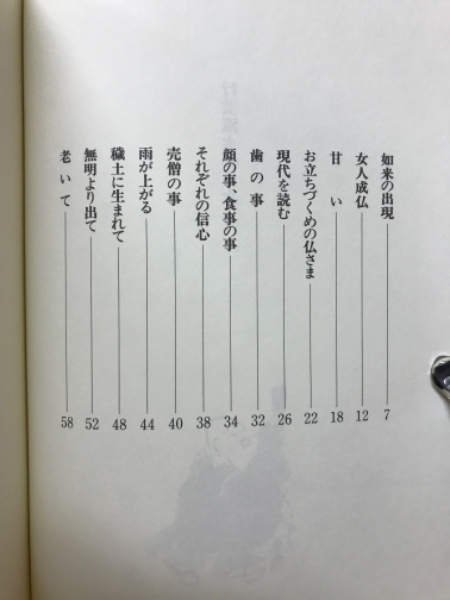 如来の出現 7
女人成仏 12
甘い 18
お立ちづくめの仏さま 22
現代を読む 26
歯の事 32
顔の事、食事の事 34
それぞれの信心 38
売僧の事 40
雨が上がる 44
穢土に生まれて 48
無明より出て 52
老いて 58